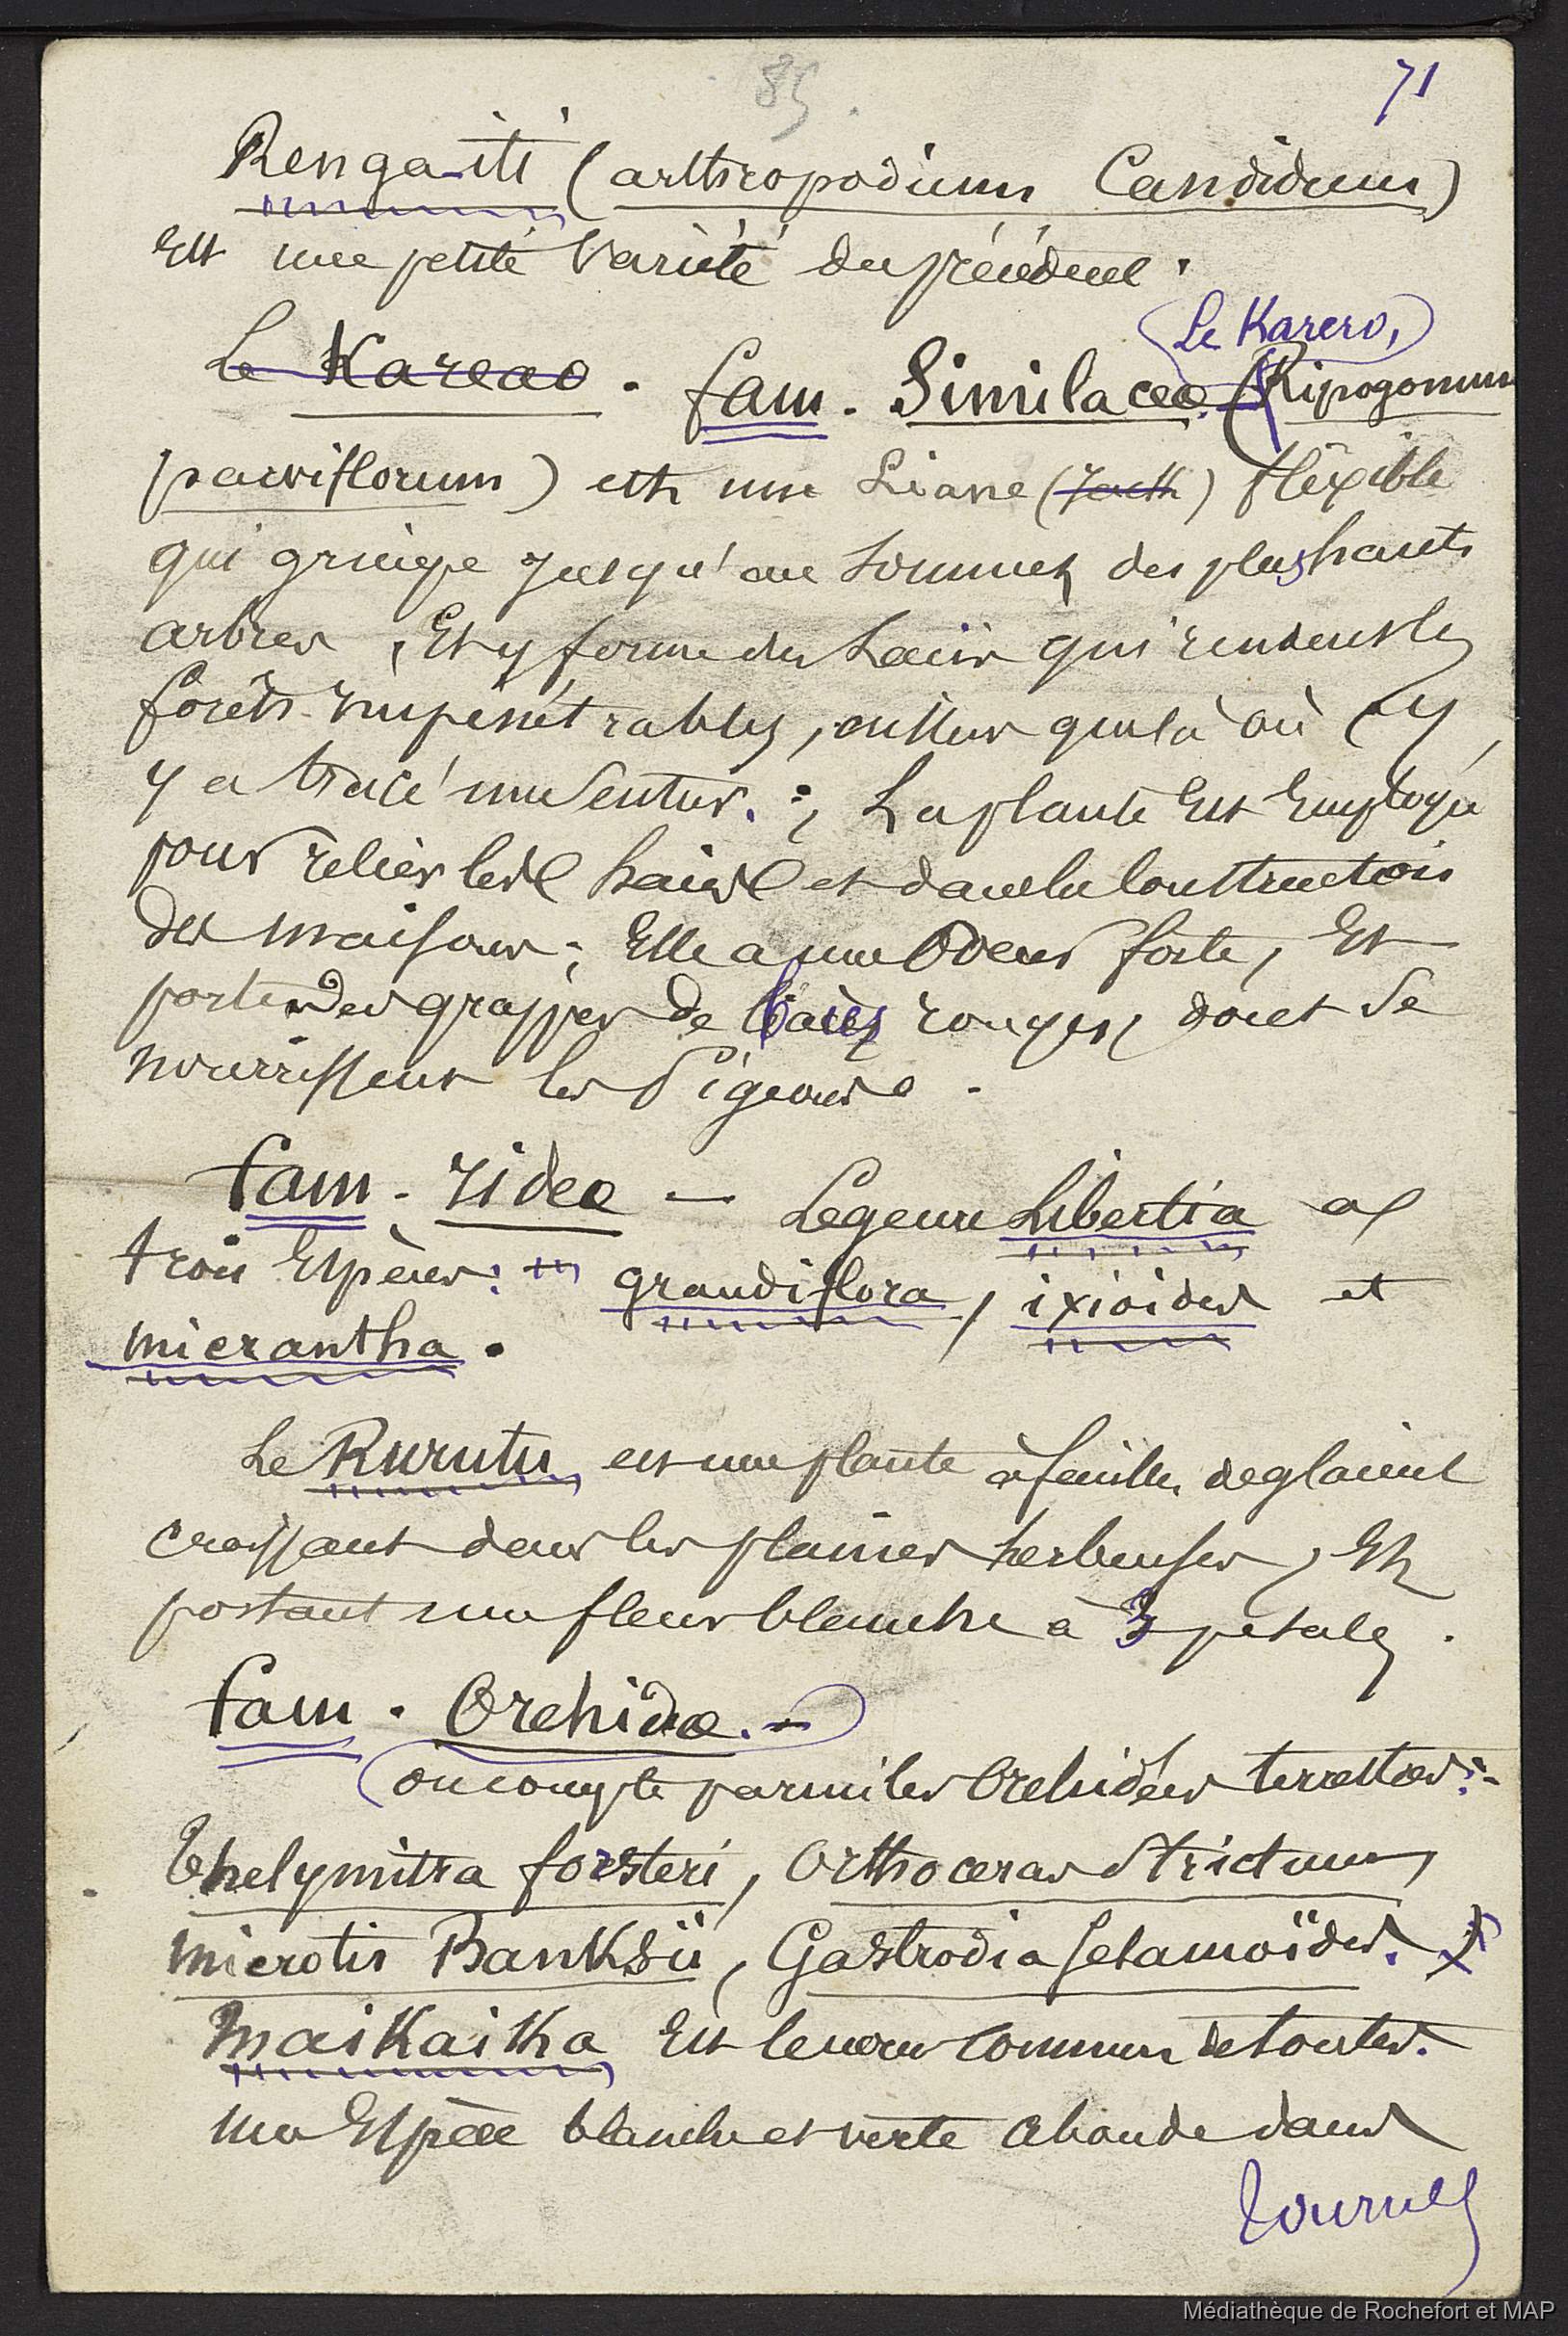 85.
71
Renga-iti (arthropodium Candidum)
Est une petite Variété du précédent.
Le Karero,
Le Kareao. fam. Similaceæ. (Ripogonum
parviflorum) est une Liane flexible
qui grimpe jusqu'au sommet des plus hauts
arbres, Et y forme des haies qui rendent les
forêts impénétrables, ailleurs que là où
y a tracé un Sentier. ; La plante Est Employée
pour relier les haies et dans la Construction
des maisons ; Elle a une Odeur forte, Et
porte des grappes de baies rouges, dont se
nourrissent les Pigeons.
fam. Iideæ — Le genre Libertia a
trois Espèces: grandiflora, ixioides et
micrantha.
Le Rurutu est une plante à feuilles de glaieul
croissant dans les plaines herbeuses, Et
portant une fleur blanche à 3 petales.
fam. Orchidæ. —
on compte parmi les Orchidées terrestres :-
Thelymitra forsteri, Orthoceras Strictum,
microtis Banksii, Gastrodia Sesamoïdes.
Maikaika Est le nom commun de toutes.
une Espèce blanche et verte abonde dans
tournez
Médiathèque de Rochefort et MAP